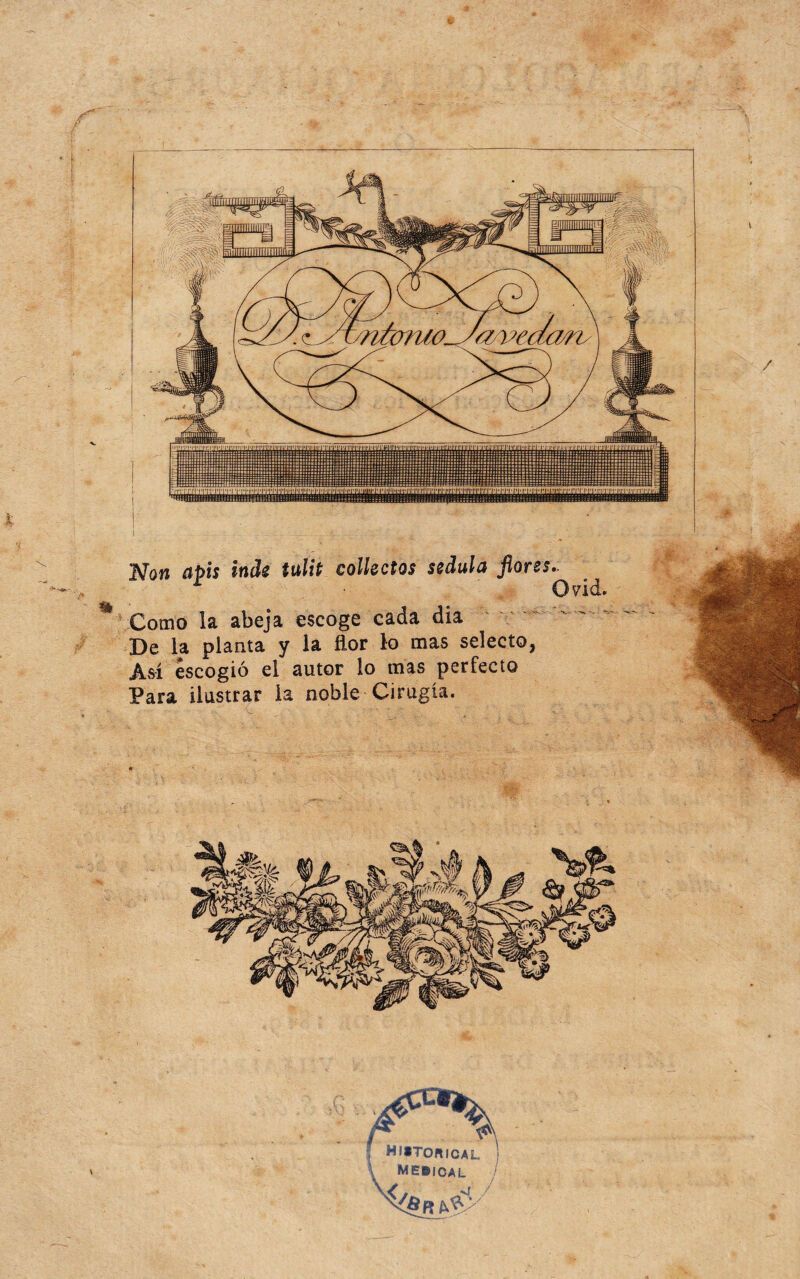 D. Antonio Lavedan
Non apis inde tulit collectos sedula flores.
Ovid.
Como la abeja escoge cada dia
De la planta y la flor lo mas selecto,
Así escogió el autor lo mas perfecto
Para ilustrar la noble Cirugía.
WELLCOME
HISTORICAL
MEDICAL
LIBRARY